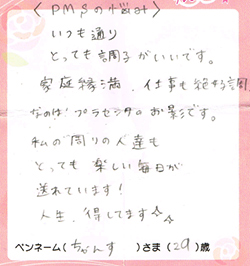 〈PMSの悩み〉
いつも通り
とっても調子がいいです。
家庭縁満、仕事も絶好調
なのはプラセンタのお影です。
私の周りの人達も
とっても楽しい毎日が
送れています!
人生、得してます☆☆
ペンネーム(ちゃんす)さま(29)歳